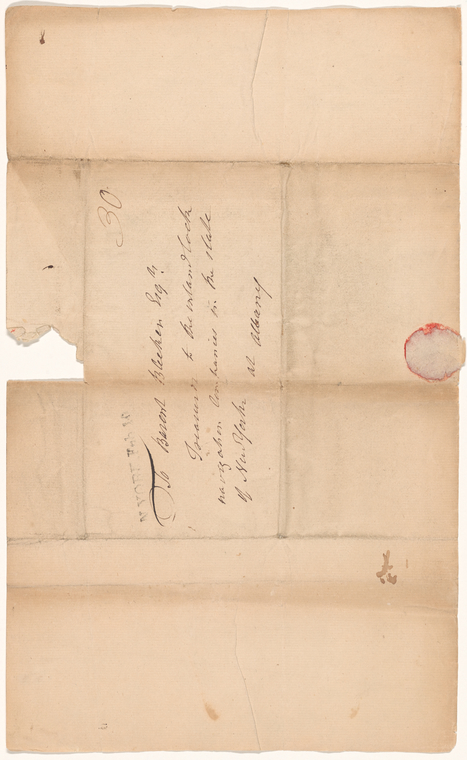 30
To Barent Bleecker Esqr.
Treasurer to the inland lock
navigation Companies in the State
of New York at Albany